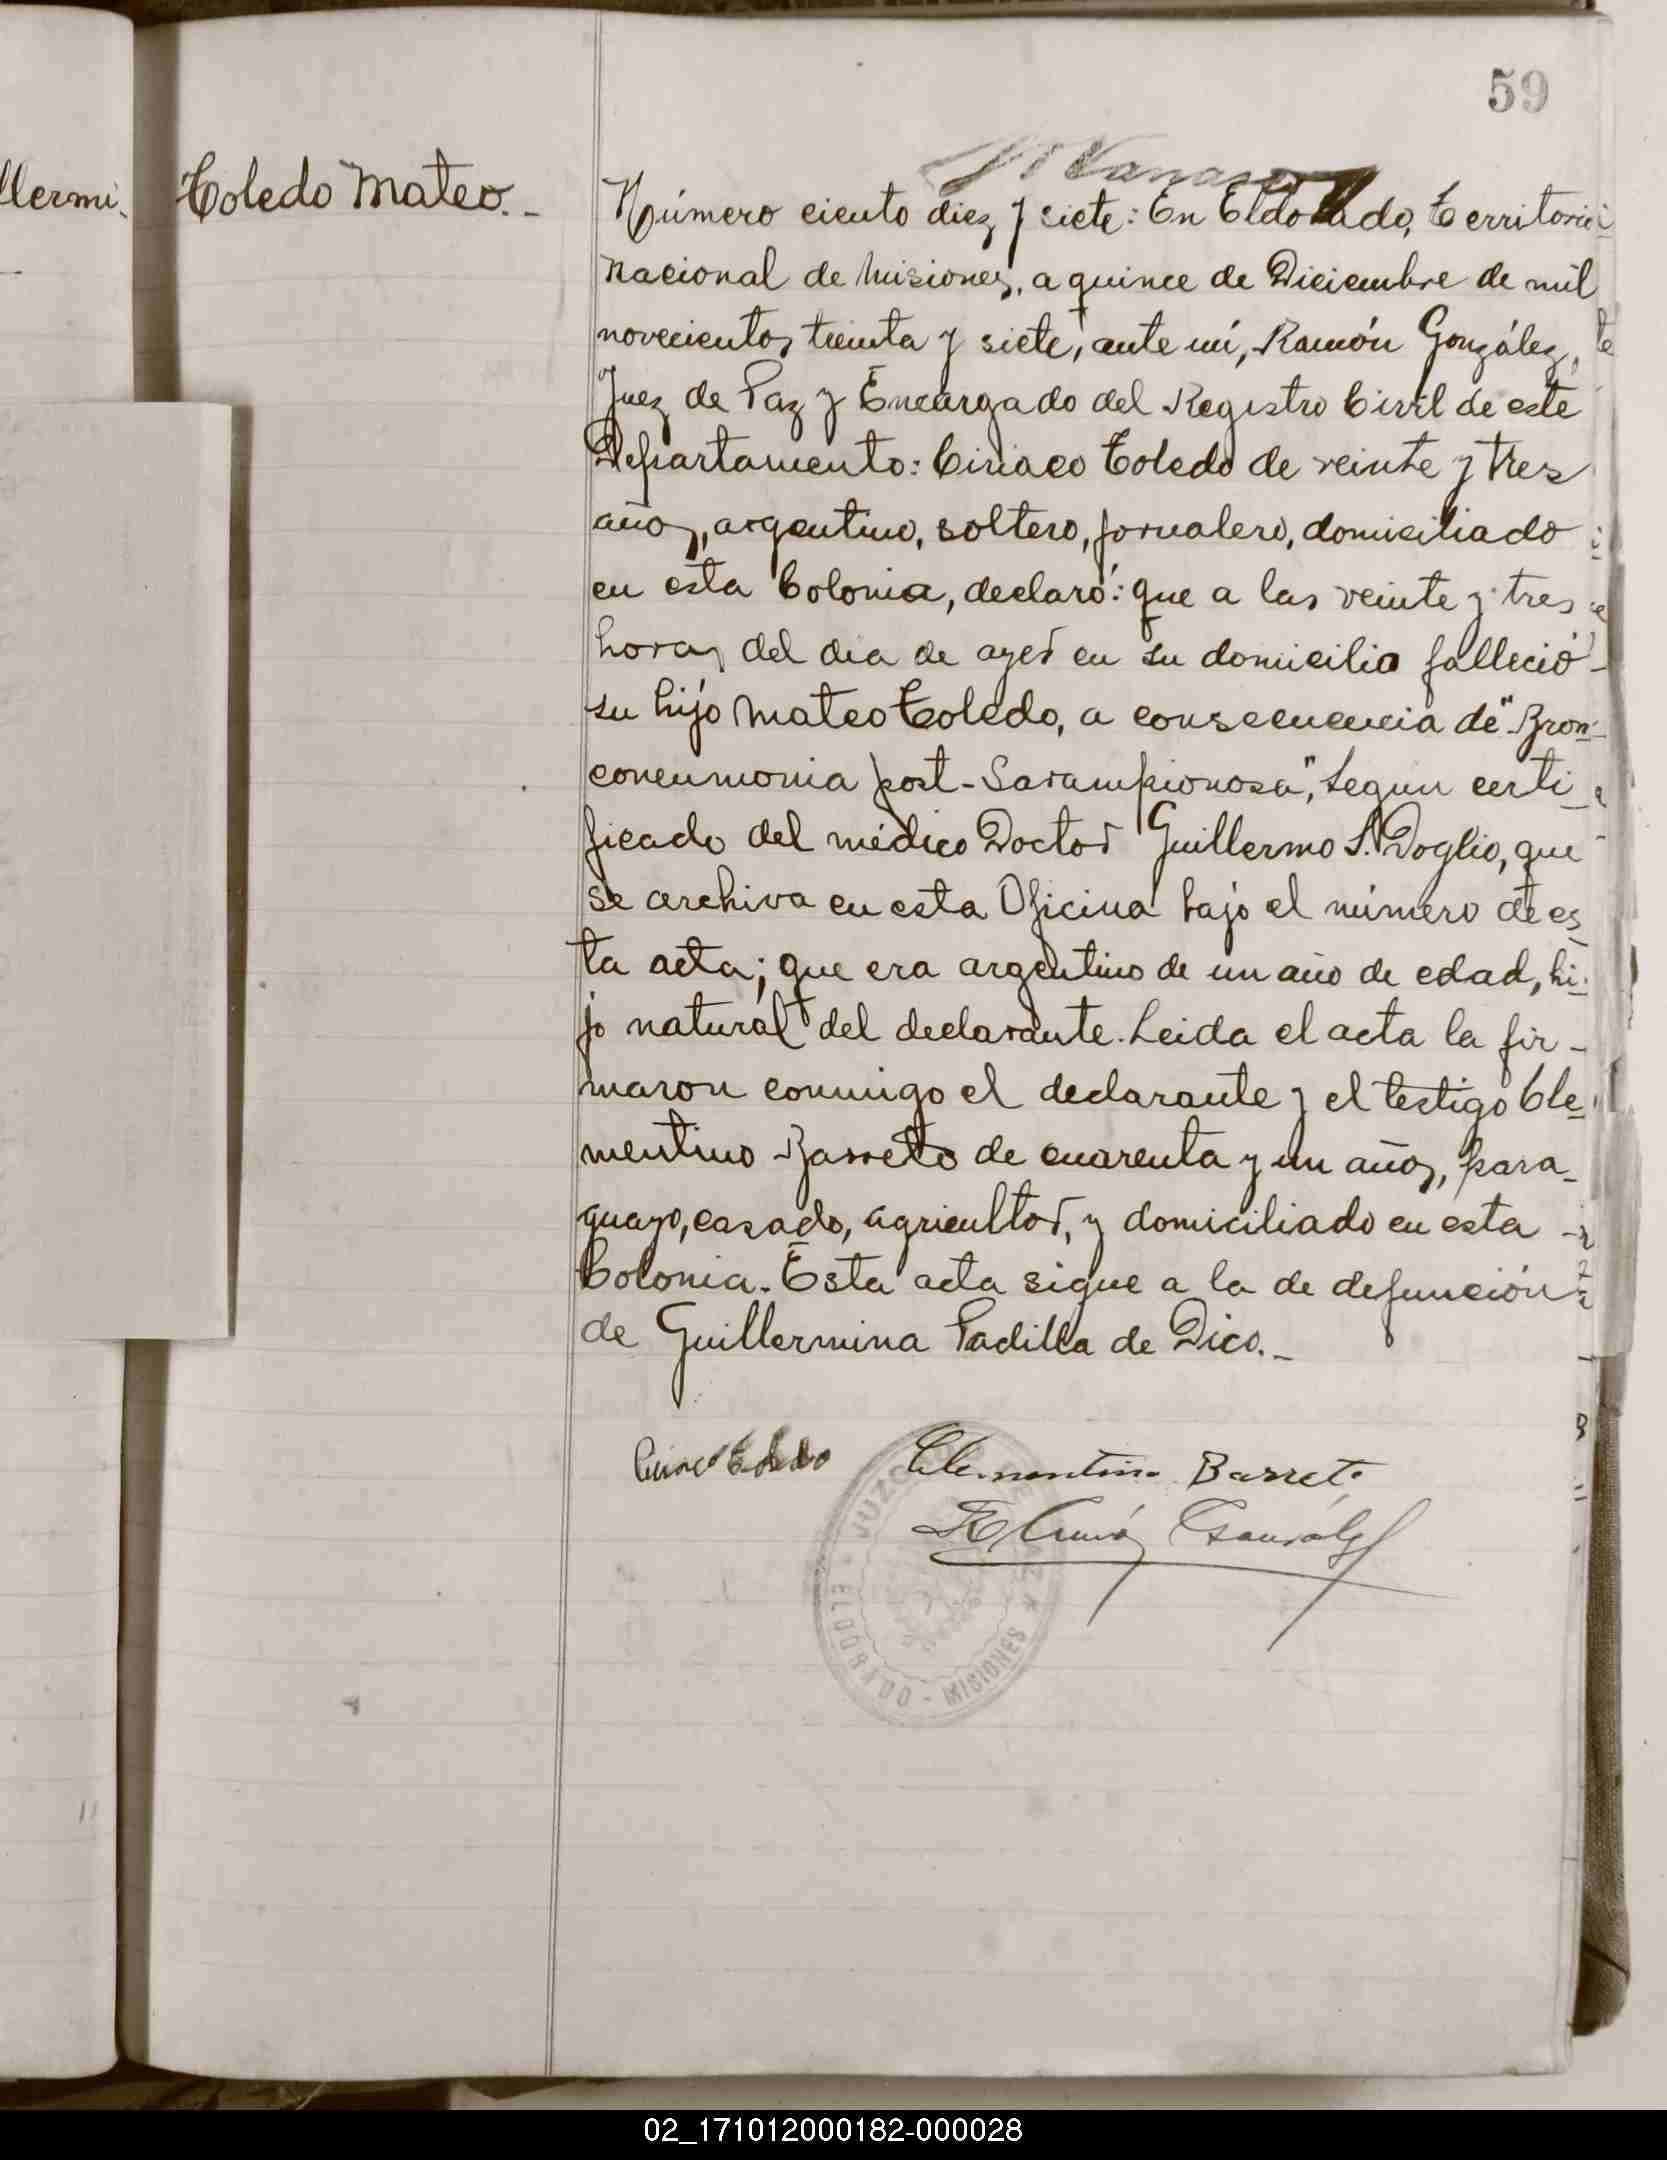 59
llermi-
Toledo Mateo.-
Número ciento diez y siete: En Eldorado, Territorio
Nacional de Misiones, a quince de Diciembre de mil
novecientos treinta y siete, ante mí, Ramón González,
Juez de Paz y Encargado del Registro Civil de este
Departamento: Ciriaco Toledo de veinte y tres
años, argentino, soltero, jornalero, domiciliado
en esta Colonia, declaró: que a las veinte y tres
horas del día de ayer en su domicilio falleció
su hijo Mateo Toledo, a consecuencia de "Bron-
coneumonia post-Sarampionosa", segun certi-
ficado del médico Doctor Guillermo S. Doglio, que
se archiva en esta Oficina bajo el número de es-
ta acta; que era argentino de un año de edad, hi-
jo natural del declarante. Leida el acta la fir-
maron conmigo el declarante y el testigo Cle-
mentino Barreto de cuarenta y un años, para-
guayo, casado, agricultor, y domiciliado en esta
Colonia. Esta acta sigue a la de defunción
de Guillermina Padilla de Dico.-
Ciriaco Toledo
Clementino Barreto
Ramón González
JUZG
ELDORADO - MISIONES
02_171012000182-000028